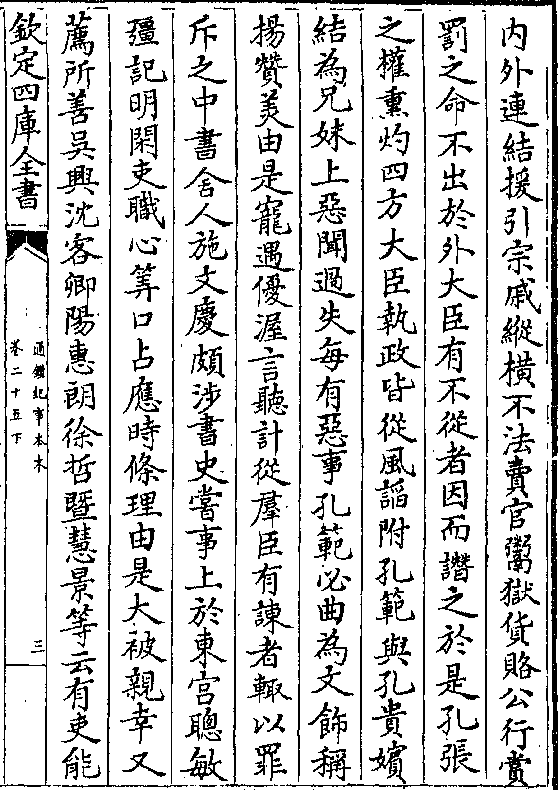 内外連結援引宗戚縱橫不法賣官鬻獄貨賂公行賞
罰之命不出於外大臣有不從者因而譖之於是孔張
之權熏灼四方大臣執政皆從風謟附孔範與孔貴嬪
結為兄妹上惡聞過失每有惡事孔範必曲為文飾稱
揚贊美由是寵遇優渥言聽計從羣臣有諫者輒以罪
斥之中書舍人施文慶頗涉書史嘗事上於東宫聰敏
彊記明閑吏職心筭口占應時條理由是大被親幸又
薦所善吳興沈客卿陽惠朗徐哲暨慧景等云有吏能
欽定四庫全書
通鑑紀事本末
卷二十五下
三